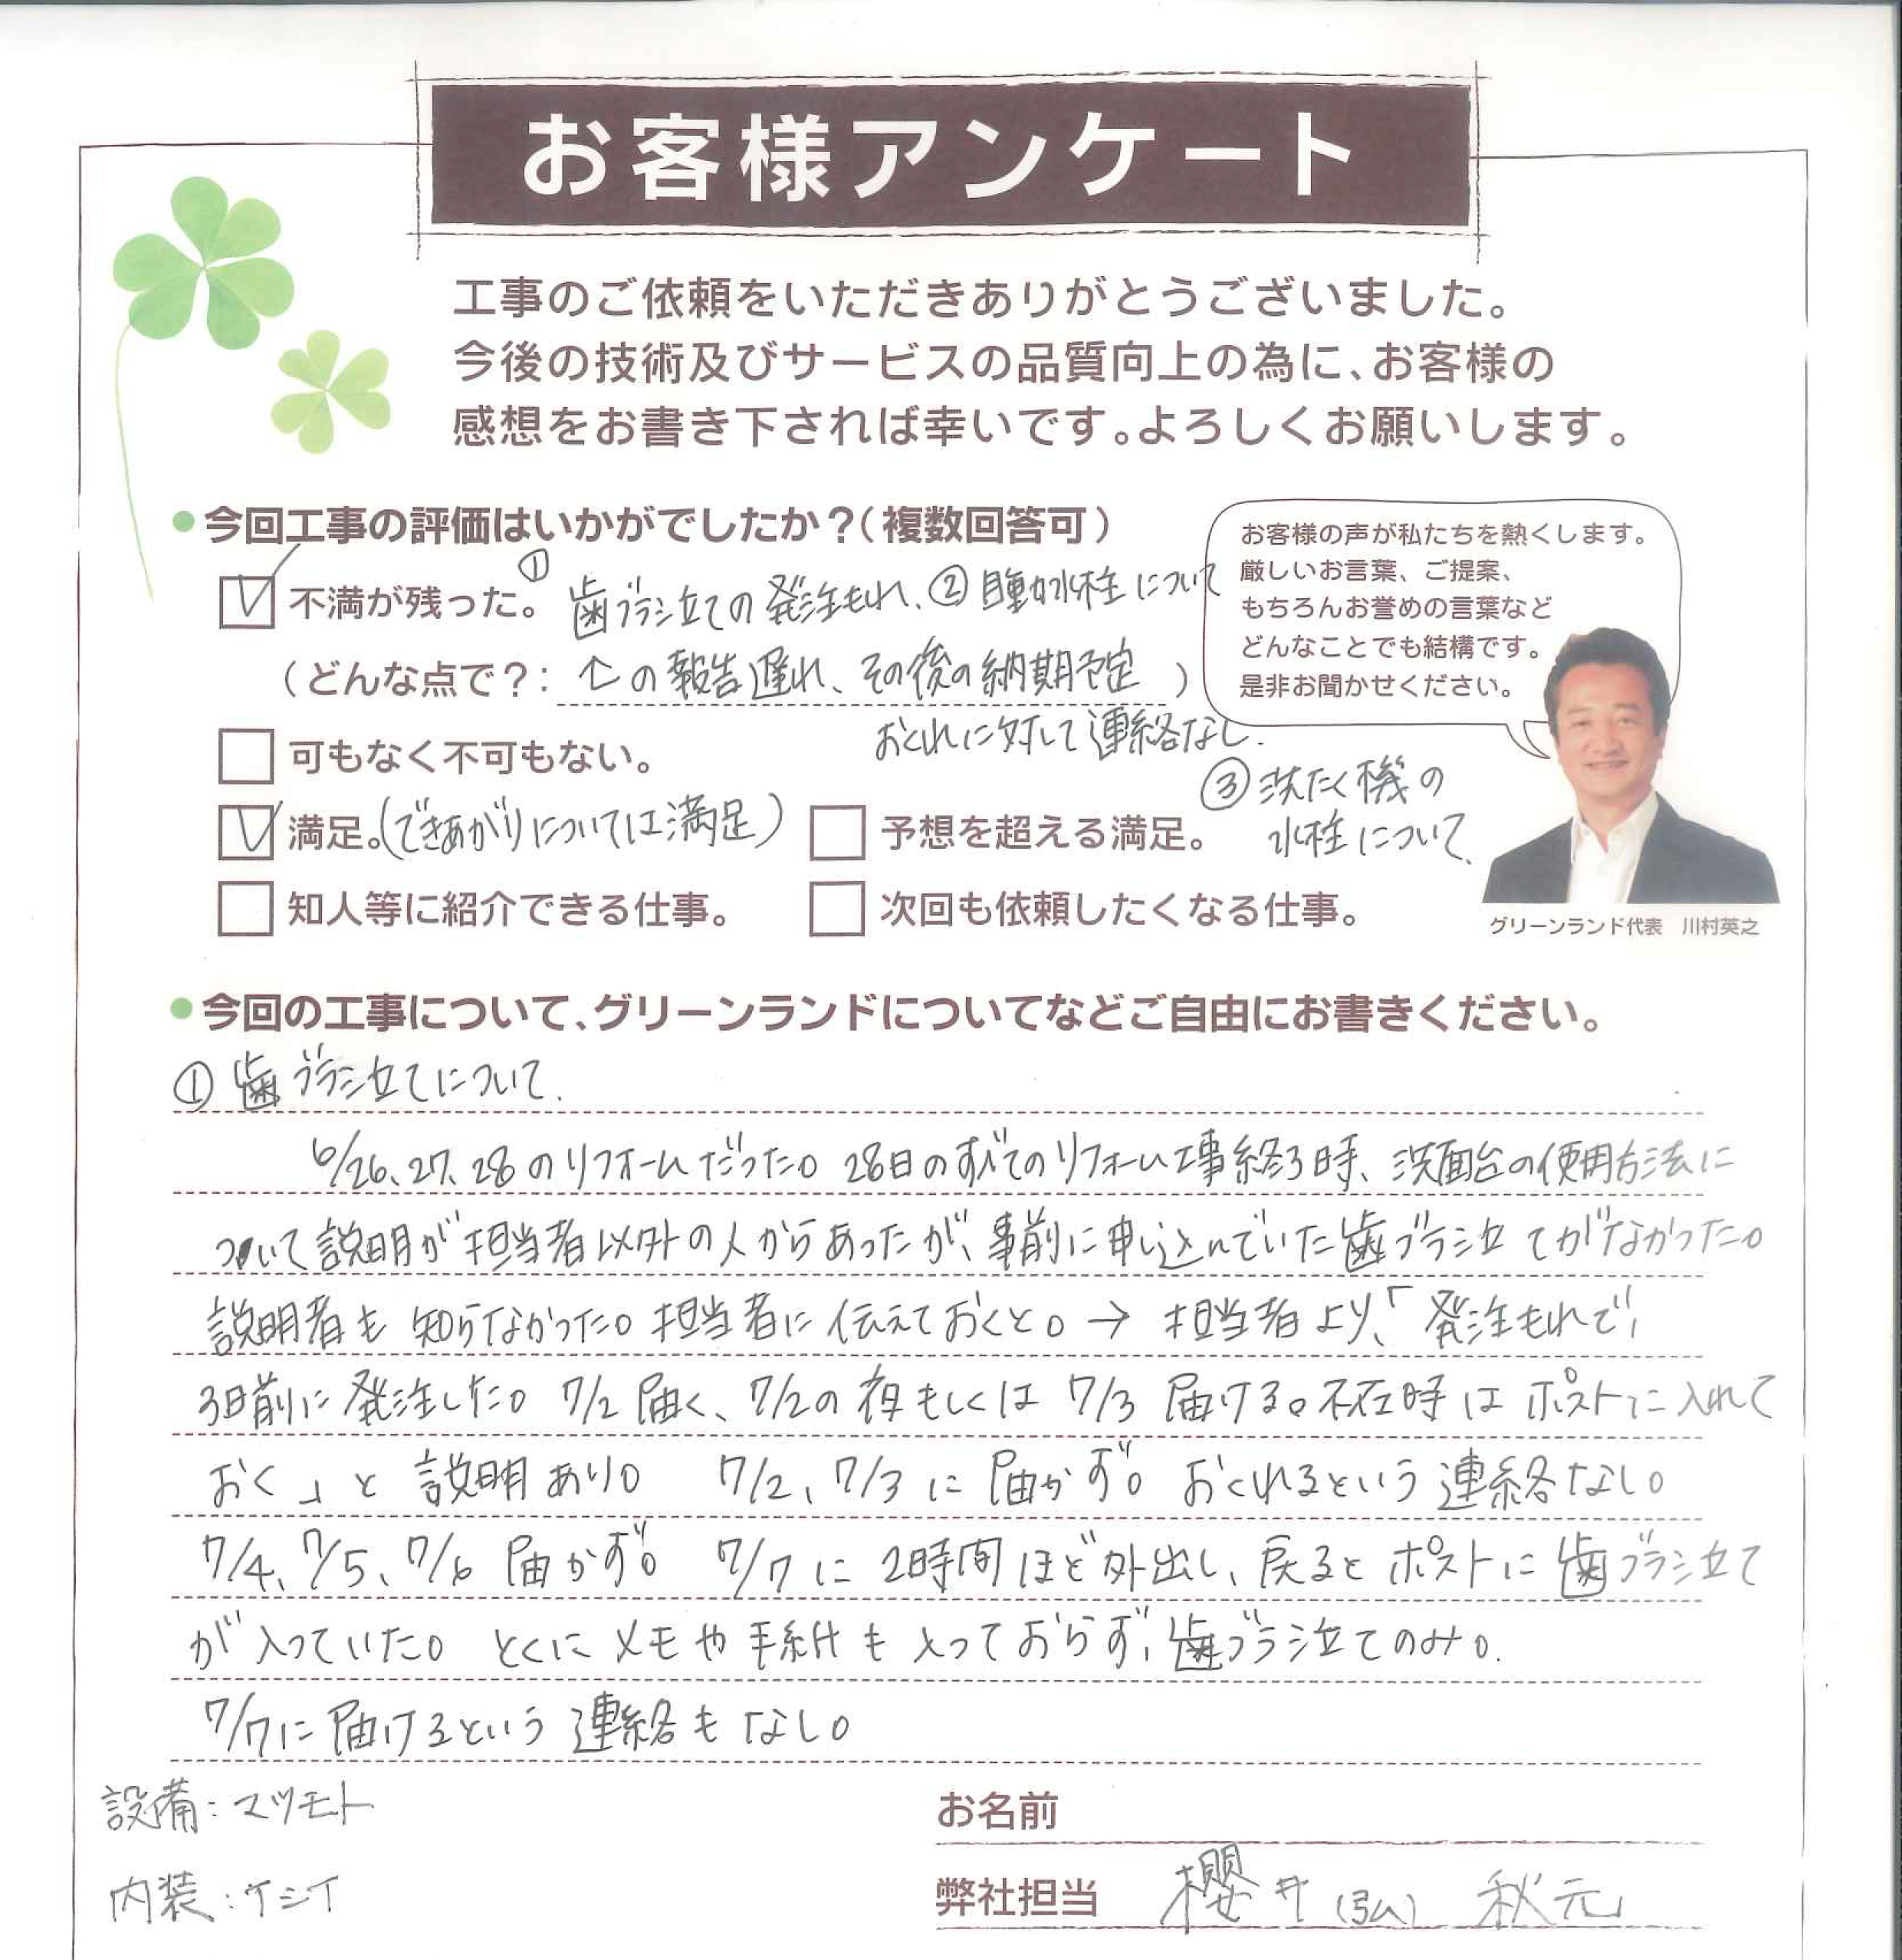 お客様アンケート
工事のご依頼をいただきありがとうございました。
今後の技術及びサービスの品質向上の為に、お客様の
感想をお書き下されば幸いです。よろしくお願いします。
今回工事の評価はいかがでしたか?(複数回答可)
不満が残った。①歯ブラシ立ての発注もれ、②自動水栓について
(どんな点で?: ↑の報告遅れ、その後の納期予定)
おくれに対して連絡なし.
可もなく不可もない。
③洗たく機の
水栓について、
満足。(できあがりについては満足)
予想を超える満足。
知人等に紹介できる仕事。
次回も依頼したくなる仕事。
お客様の声が私たちを熱くします。
厳しいお言葉、ご提案、
もちろんお誉めの言葉など
どんなことでも結構です。
是非お聞かせください。
グリーンランド代表 川村英之
今回の工事について、グリーンランドについてなどご自由にお書きください。
①歯ブラシ立てについて.
6/26、27、28のリフォームだった。28日のすべてのリフォーム工事終る時、洗面台の使用方法に
ついて説明が担当者以外の人からあったが、事前に申し込んでいた歯ブラシ立てがなかった。
説明者も知らなかった。担当者に伝えておくと。→担当者より、「発注もれで、
3日前に発注した。7/2届く、7/2の夜もしくは7/3届ける。不在時はポストに入れて
おく」と説明あり。 7/2、7/3に届かず。おくれるという連絡なし。
7/4、7/5、7/6届かず。 7/7に2時間ほど外出し、戻るとポストに歯ブラシ立て
が入っていた。とくにメモや手紙も入っておらず、歯ブラシ立てのみ。
7/7に届けるという連絡もなし。
設備:マツモト
内装:ケシイ
お名前
弊社担当 櫻井(弘) 秋元